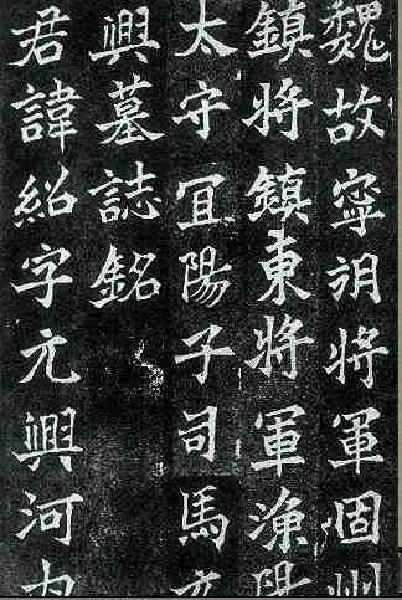 魏故寧朔將軍固州
鎮將鎮東將軍漁陽
太守宜陽子司馬元
興墓誌銘
君諱紹字元興河內